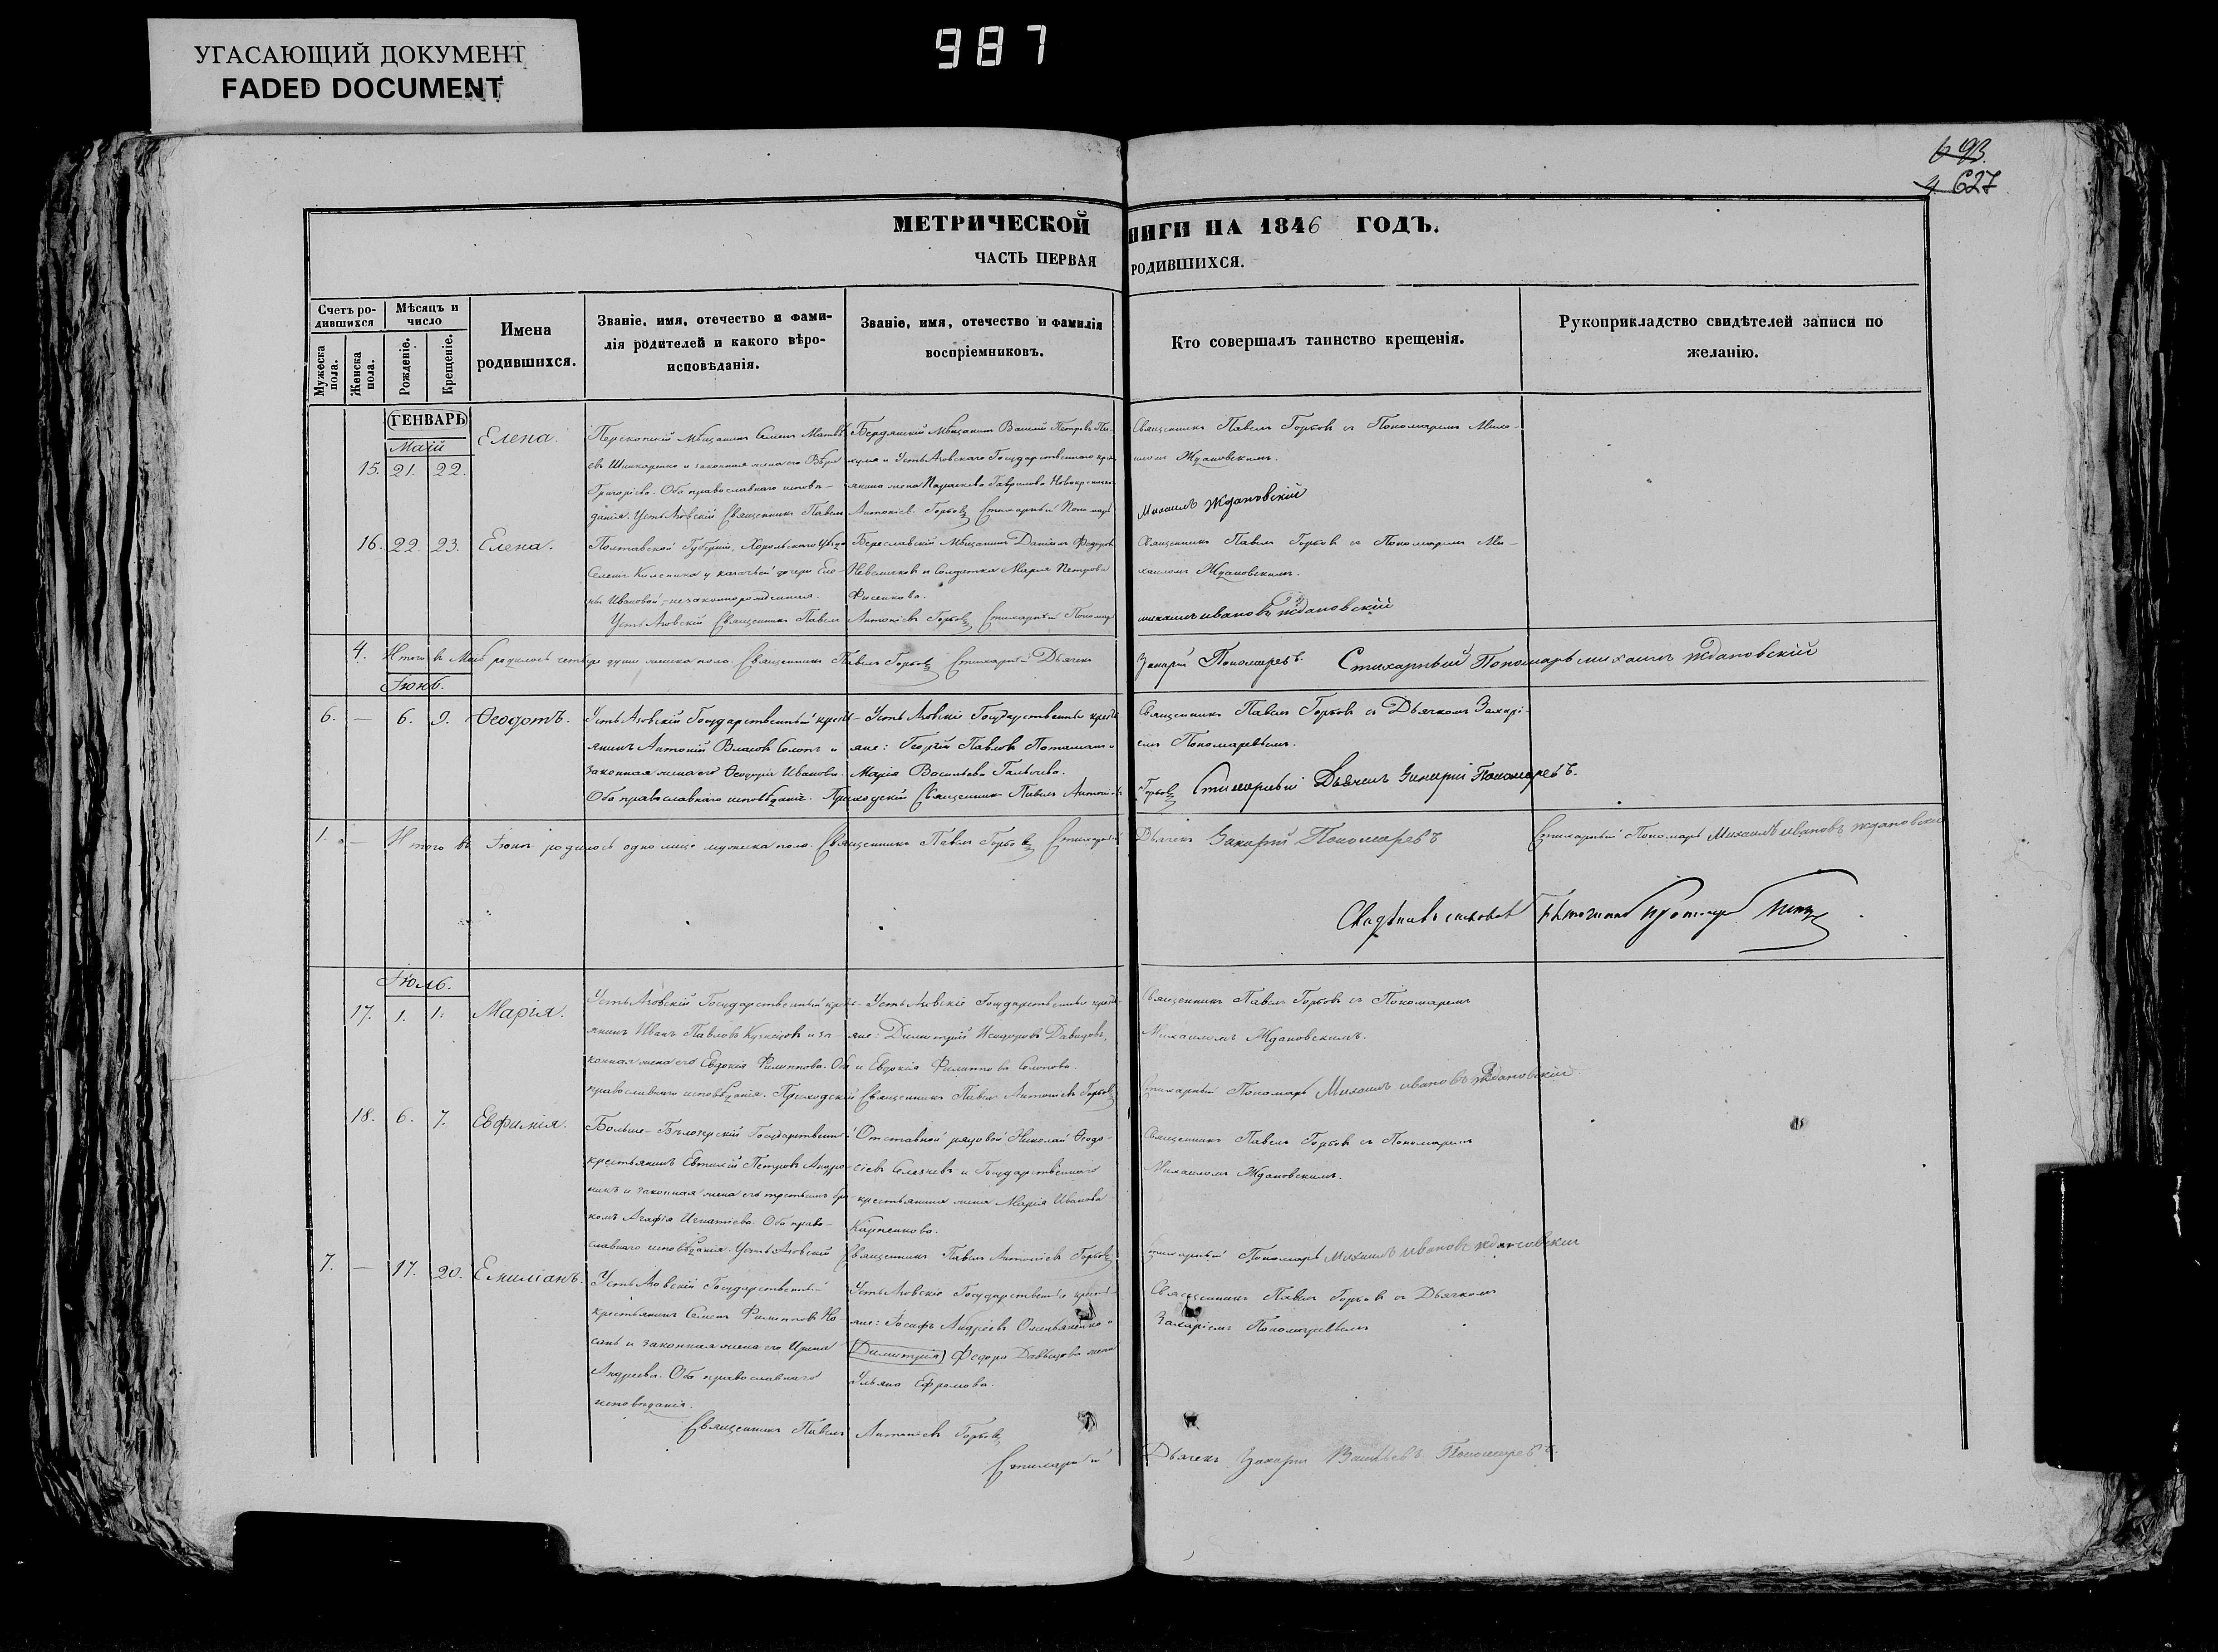 УГАСАЮЩИЙ ДОКУМЕНТ
FADED DOCUMENT
987
693.
627
МЕТРИЧЕСКОЙ
НИГИ НА 1846 ГОДЪ.
ЧАСТЬ ПЕРВАЯ
РОДИВШИХСЯ.
Счетъ ро-
дившихся
Мужеска
пола.
Женска
пола.
Мѣсяцъ и
число
Рожденіе.
Крещеніе.
Имена
родившихся.
Званіе, имя, отечество и фами-
лія родителей и какого вѣро-
исповѣданія.
Званіе, имя, отечество и фамилія
воспріемниковъ.
Кто совершалъ таинство крещенія.
Рукоприкладство свидѣтелей записи по
желанію.
ГЕНВАРЬ
Маій
15. 21. 22.
Елена.
Перекопскій Мѣщанинъ Семенъ Матвѣ-
евъ Шинкаренко и законная жена его Вѣра
Григоріева. Оба православнаго исповѣ-
данія. Усть Азовскій Священникъ Павелъ
Бердянскій Мѣщанинъ Василій Петровъ
и Усть Азовскаго Государственнаго кресть
янина жена Параскева Гаврилова
Антоніевъ Горбовъ Стихарный Пономарь
Священникъ Павелъ Горбовъ съ Пономаремъ Миха-
иломъ Ждановскимъ.
Михаилъ Ждановскій
16. 22. 23.
Елена.
Полтавской Губерніи, Хорольскаго уѣзда
Селенія у казачьей дочери Еле-
ны Ивановой, незаконнорожденная.
Усть Азовскій Священникъ Павелъ
Береславскій Мѣщанинъ Даніилъ Федоровъ
и Солдатка Марія Петрова
Фисенкова.
Антоніевъ Горбовъ Стихарный Пономарь
Священникъ Павелъ Горбовъ съ Пономаремъ Ми-
хаиломъ Ждановскимъ.
михаилъ ивановъ Ждановскій
4. Итого въ Маѣ родилось четыре души женска пола. Священникъ Павелъ Горбовъ Стихарный Дьячекъ
Захарій Пономаревъ. Стихарный Пономарь михаилъ Ждановскій
Іюнь.
6. — 6. 9.
Ѳеодотъ.
Усть Азовскій Государственный кресть-
янинъ Антоній Власовъ Солопъ и
законная жена его Ѳеодосія Иванова.
Оба православнаго исповѣданія. Приходскій Священникъ Павелъ Антоніевъ
Усть Азовскіе Государственные кресть
яне: Георгій Павловъ и
Марія Васильева
Священникъ Павелъ Горбовъ съ Дьячкомъ Захарі-
емъ Пономаревымъ.
Горбовъ Стихарный Дьячекъ Захарій Пономаревъ.
1. — Итого въ Іюнѣ родилось одно лице мужеска пола. Священникъ Павелъ Горбовъ Стихарный
Дьячекъ Захарій Пономаревъ
Стихарный Пономарь Михаилъ ивановъ Ждановскій
Іюль.
17. 1. 1.
Марія.
Усть Азовскій Государственный кресть-
янинъ Иванъ Павловъ Кузнецовъ и за
конная жена его Евдокія Филиппова. Оба
православнаго исповѣданія. Приходскій Священникъ Павелъ Антоніевъ Горбовъ
Усть Азовскіе Государственные кресть
яне: Димитрій Исидоровъ Давидовъ,
и Евдокія Филиппова Солопова.
Священникъ Павелъ Горбовъ съ Пономаремъ
Михаиломъ Ждановскимъ.
Стихарный Пономарь Михаилъ ивановъ Ждановскій
18. 6. 7.
Евфимія.
Больше-Бѣлозерскій Государственный
крестьянинъ Евтихій Петровъ Андро-
никъ и законная жена его третьимъ бра
комъ Агафія Игнатіева. Оба право-
славнаго исповѣданія. Усть Азовскій
Отставной рядовой Николай Ѳеодо-
сіевъ и Государственнаго
крестьянина жена Марія Иванова
Карпенкова.
Священникъ Павелъ Антоніевъ Горбовъ
Священникъ Павелъ Горбовъ съ Пономаремъ
Михаиломъ Ждановскимъ.
Стихарный Пономарь Михаилъ ивановъ Ждановскій
7. — 17. 20.
Емиліанъ.
Усть Азовскій Государственный
крестьянинъ Семенъ Филипповъ Но-
сань и законная жена его Ирина
Андреева. Оба православнаго
исповѣданія.
Усть Азовскіе Государственные кресть-
яне: Іосифъ Андреевъ Омельяненко и
(Димитрія) Федора Давыдова жена
Ульяна Ефремова.
Священникъ Павелъ Антоніевъ Горбовъ
Стихарный
Священникъ Павелъ Горбовъ съ Дьячкомъ
Захаріемъ Пономаревымъ
Дьячекъ Захарій Васильевъ Пономаревъ.